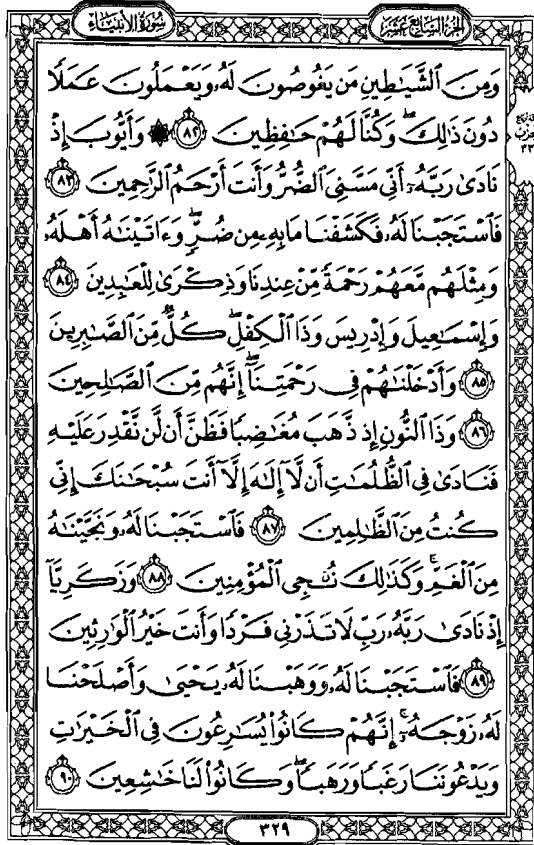 سُورَةُ الأَنبِيَاء
الجُزءُ السَّابِع عَشَر
وَمِنَ ٱلشَّيَٰطِينِ مَن يَغُوصُونَ لَهُۥ وَيَعْمَلُونَ عَمَلًا
دُونَ ذَٰلِكَ ۖ وَكُنَّا لَهُمْ حَٰفِظِينَ ٨٢ ۞ وَأَيُّوبَ إِذْ
نَادَىٰ رَبَّهُۥٓ أَنِّى مَسَّنِىَ ٱلضُّرُّ وَأَنتَ أَرْحَمُ ٱلرَّٰحِمِينَ ٨٣
فَٱسْتَجَبْنَا لَهُۥ فَكَشَفْنَا مَا بِهِۦ مِن ضُرٍّ ۖ وَءَاتَيْنَٰهُ أَهْلَهُۥ
وَمِثْلَهُم مَّعَهُمْ رَحْمَةً مِّنْ عِندِنَا وَذِكْرَىٰ لِلْعَٰبِدِينَ ٨٤
وَإِسْمَٰعِيلَ وَإِدْرِيسَ وَذَا ٱلْكِفْلِ ۖ كُلٌّ مِّنَ ٱلصَّٰبِرِينَ
٨٥ وَأَدْخَلْنَٰهُمْ فِى رَحْمَتِنَآ ۖ إِنَّهُم مِّنَ ٱلصَّٰلِحِينَ
٨٦ وَذَا ٱلنُّونِ إِذ ذَّهَبَ مُغَٰضِبًا فَظَنَّ أَن لَّن نَّقْدِرَ عَلَيْهِ
فَنَادَىٰ فِى ٱلظُّلُمَٰتِ أَن لَّآ إِلَٰهَ إِلَّآ أَنتَ سُبْحَٰنَكَ إِنِّى
كُنتُ مِنَ ٱلظَّٰلِمِينَ ٨٧ فَٱسْتَجَبْنَا لَهُۥ وَنَجَّيْنَٰهُ
مِنَ ٱلْغَمِّ ۚ وَكَذَٰلِكَ نُۨجِى ٱلْمُؤْمِنِينَ ٨٨ وَزَكَرِيَّآ
إِذْ نَادَىٰ رَبَّهُۥ رَبِّ لَا تَذَرْنِى فَرْدًا وَأَنتَ خَيْرُ ٱلْوَٰرِثِينَ
٨٩ فَٱسْتَجَبْنَا لَهُۥ وَوَهَبْنَا لَهُۥ يَحْيَىٰ وَأَصْلَحْنَا
لَهُۥ زَوْجَهُۥٓ ۚ إِنَّهُمْ كَانُوا۟ يُسَٰرِعُونَ فِى ٱلْخَيْرَٰتِ
وَيَدْعُونَنَا رَغَبًا وَرَهَبًا ۖ وَكَانُوا۟ لَنَا خَٰشِعِينَ ٩٠
٣٢٩